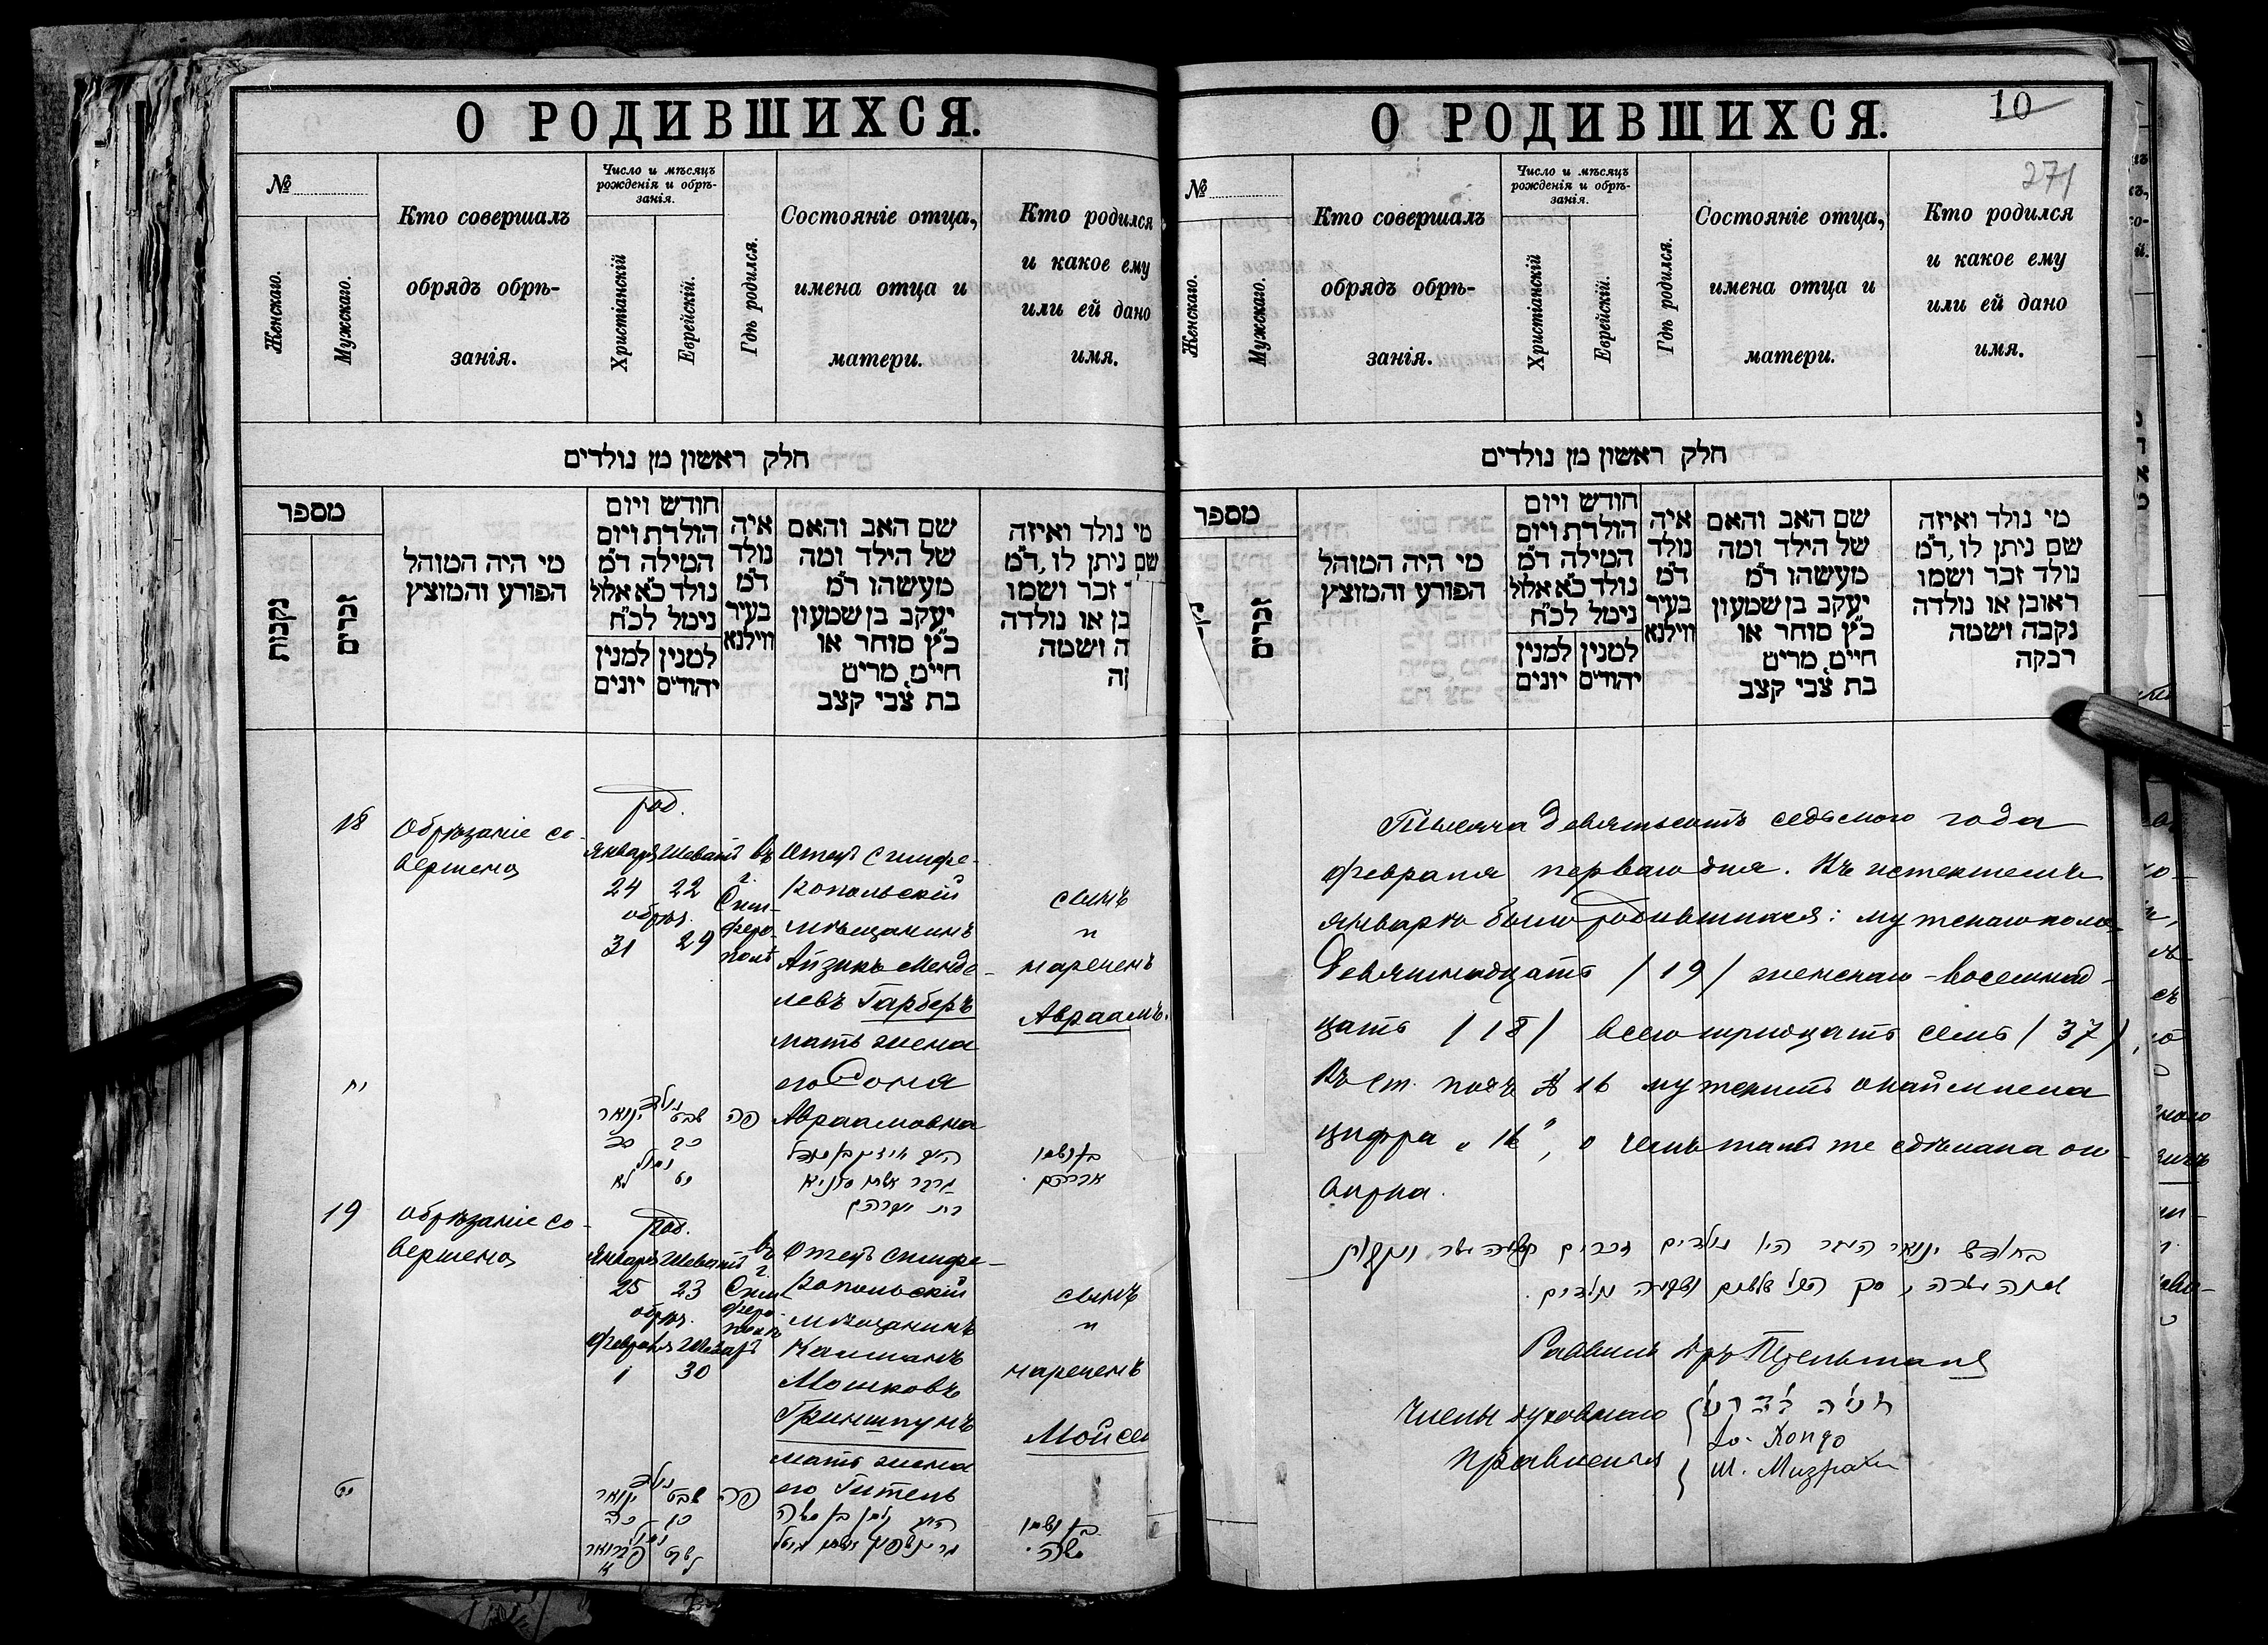 О РОДИВШИХСЯ.
№
Женскаго.
Мужскаго.
Кто совершалъ
обрядъ обрѣ-
занія.
Число и мѣсяцъ
рожденія и обрѣ-
занія.
Христіанскій
Еврейскій.
Гдѣ родился.
Состояніе отца,
имена отца и
матери.
Кто родился
и какое ему
или ей дано
имя.
חלק ראשון מן נולדים
מספר
נקבות
זכרים
מי היה המוהל
הפורע והמוצץ
חודש ויום
הולדת ויום
המילה ד״מ
נולד כ״א אלול
נימל לכ״ח
למנין יונים
למנין יהודים
איה
נולד
ד״מ
בעיר
ווילנא
שם האב והאם
של הילד ומה
מעשהו ד״מ
יעקב בן שמעון
כ״ץ סוחר או
חיים, מרים
בת צבי קצב
מי נולד ואיזה
שם ניתן לו, ד״מ
זכר ושמו
בן או נולדה
ה ושמה
ה
18
Обрѣзаніе со-
вершено
род.
Январь Шеватъ
24 22
обрѣз.
31 29
въ
г.
Сим-
феро-
полѣ
Отецъ симфе-
ропольскій
мѣщанинъ
Айзикъ Менде-
левъ Гарберъ
мать жена
его Соня
Авраамовна
сынъ
"
нареченъ
Авраамъ.
יח
נולד
שבט ינואר
כב כד
נימול
כט לא
פה
בן ושמו
אברהם.
19
Обрѣзаніе со-
вершено
род.
Январь Шеватъ
25 23
обрѣз.
Февраль Шеватъ
1 30
въ
г.
Сим
феро-
полѣ
Отецъ симфе-
ропольскій
мѣщанинъ
Калманъ
Мошковъ
Гриншпунъ
мать жена
его Гитель
сынъ
"
нареченъ
Мойсе
יט
נולד
שבט ינואר
כג כה
נימול
פברואר
א
פה
בן ושמו
משה.
О РОДИВШИХСЯ.
10
271
№
Женскаго.
Мужскаго.
Кто совершалъ
обрядъ обрѣ-
занія.
Число и мѣсяцъ
рожденія и обрѣ-
занія.
Христіанскій
Еврейскій.
Гдѣ родился.
Состояніе отца,
имена отца и
матери.
Кто родился
и какое ему
или ей дано
имя.
חלק ראשון מן נולדים
מספר
זכרים
מי היה המוהל
הפורע והמוצץ
חודש ויום
הולדת ויום
המילה ד״מ
נולד כ״א אלול
נימל לכ״ח
למנין יונים
למנין יהודים
איה
נולד
ד״מ
בעיר
ווילנא
שם האב והאם
של הילד ומה
מעשהו ד״מ
יעקב בן שמעון
כ״ץ סוחר או
חיים, מרים
בת צבי קצב
מי נולד ואיזה
שם ניתן לו, ד״מ
נולד זכר ושמו
ראובן או נולדה
נקבה ושמה
רבקה
Тысяча девятьсотъ седьмого года
февраля перваго дня. Въ истекшемъ
январѣ было родившихся: мужскаго пола
девятнадцать /19/ женскаго-восемнад-
цать /18/ всего тридцать семь /37/,
Въ ст. подъ № 16 мужскихъ окаймлена
цифра „16", о чемъ тамъ же сдѣлана ого-
ворка.
בחודש ינואר העבר היו נולדים זכרים תשעה עשר ונקבות
שמנה עשרה, סך הכל שלשים ושבעה נולדים.
Раввинъ
Члены духовнаго
правленія
Ш. Мизрахи